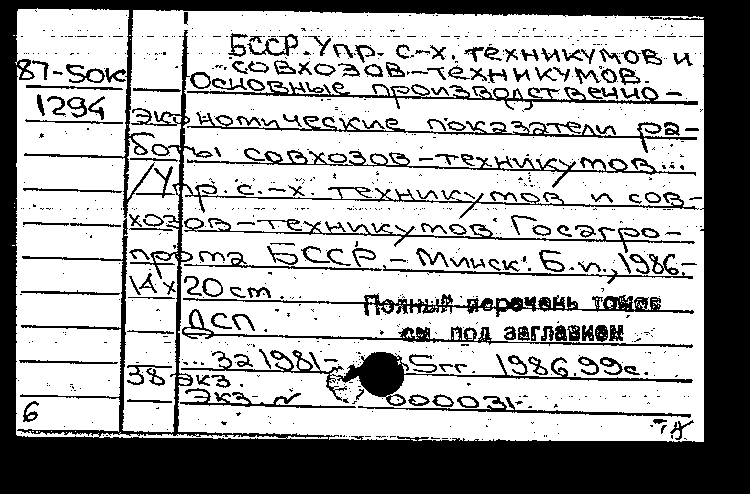 БССР. Упр. с-х. техникумов и
совхозов-техникумов.
87-50к
Основные производственно-
1294
экономические показатели ра-
боты совхозов-техникумов...
/Упр. с.-х. техникумов и сов-
хозов-техникумов Госагро-
прома БССР.-Минск: Б.и., 1986.-
14х20 см.
Полный перечень томов
ДСП.
см. под заглавием
...за 1981- 85гг. 1986. 99с.
38 экз.
Экз. № 000031-.
6